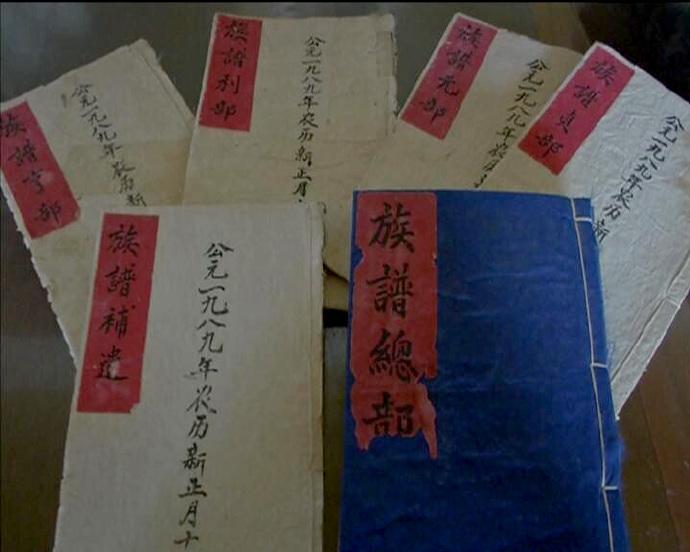 族譜亨部
公元一九八九年农历新
族譜利部
公元一九八九年农历新正月
族譜元部
公元一九八九年农历新正月
族譜貞部
公元一九八九年农历新
族譜補遺
公元一九八九年农历新正月十
族譜總部